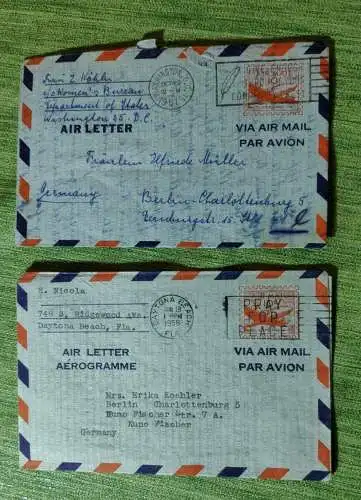 c/o Women's Bureau
Department of
Washington 25. D.C.
WASHINGTON
1951
AIR LETTER
VIA AIR MAIL
PAR AVION
Fräulein Müller
Germany
Berlin-Charlottenburg 5
15
E. Nicola
748 S. Ridgewood Ave.
Daytona Beach, Fla.
DAYTONA BEACH
1956
FLA.
PRAY
FOR
PEACE
AIR LETTER
AÉROGRAMME
VIA AIR MAIL
PAR AVION
Mrs. Erika Koehler
Berlin Charlottenburg 5
Kuno Fischer Str. 7 A.
Kuno Fischer
Germany